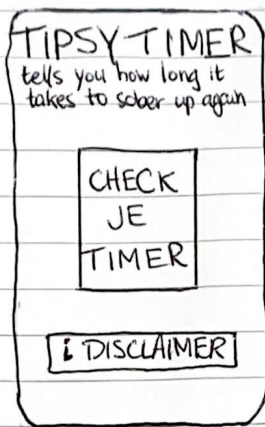 TIPSY TIMER
tells you how long it
takes to sober up again
CHECK
JE
TIMER
i DISCLAIMER